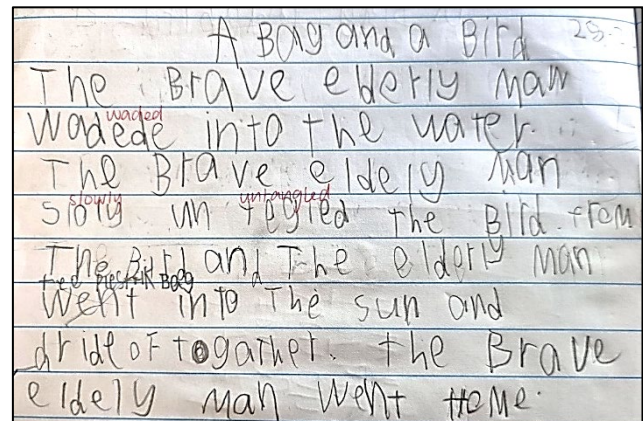 A Bag and a Bird 25.
The Brave elderly man
waded
Wadede into the water.
The Brave eldely man
slowly untangled
sloly un tegled the Bird from
The Bird and The elderly man
tee plestik Bag
Went into The sun and
dride oF togather. the Brave
eldely man went Home.